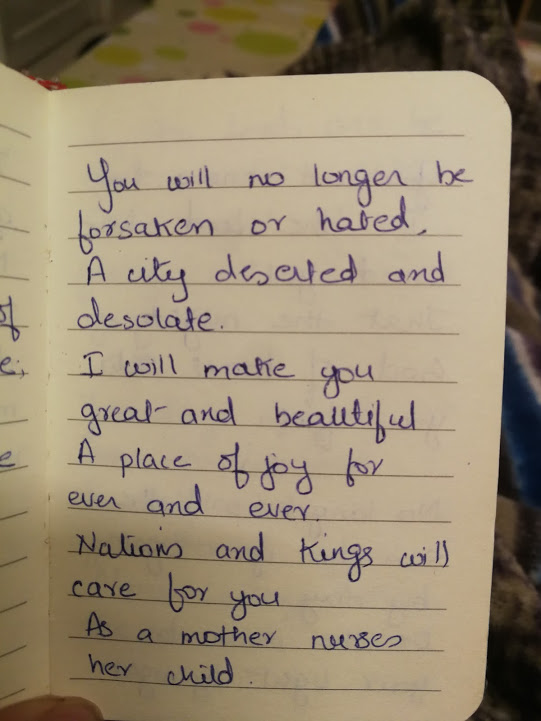 of
e;
e
You will no longer be
forsaken or hated,
A city deserted and
desolate.
I will make you
great and beautiful
A place of joy for
ever and ever.
Nations and Kings will
care for you
As a mother nurses
her child.